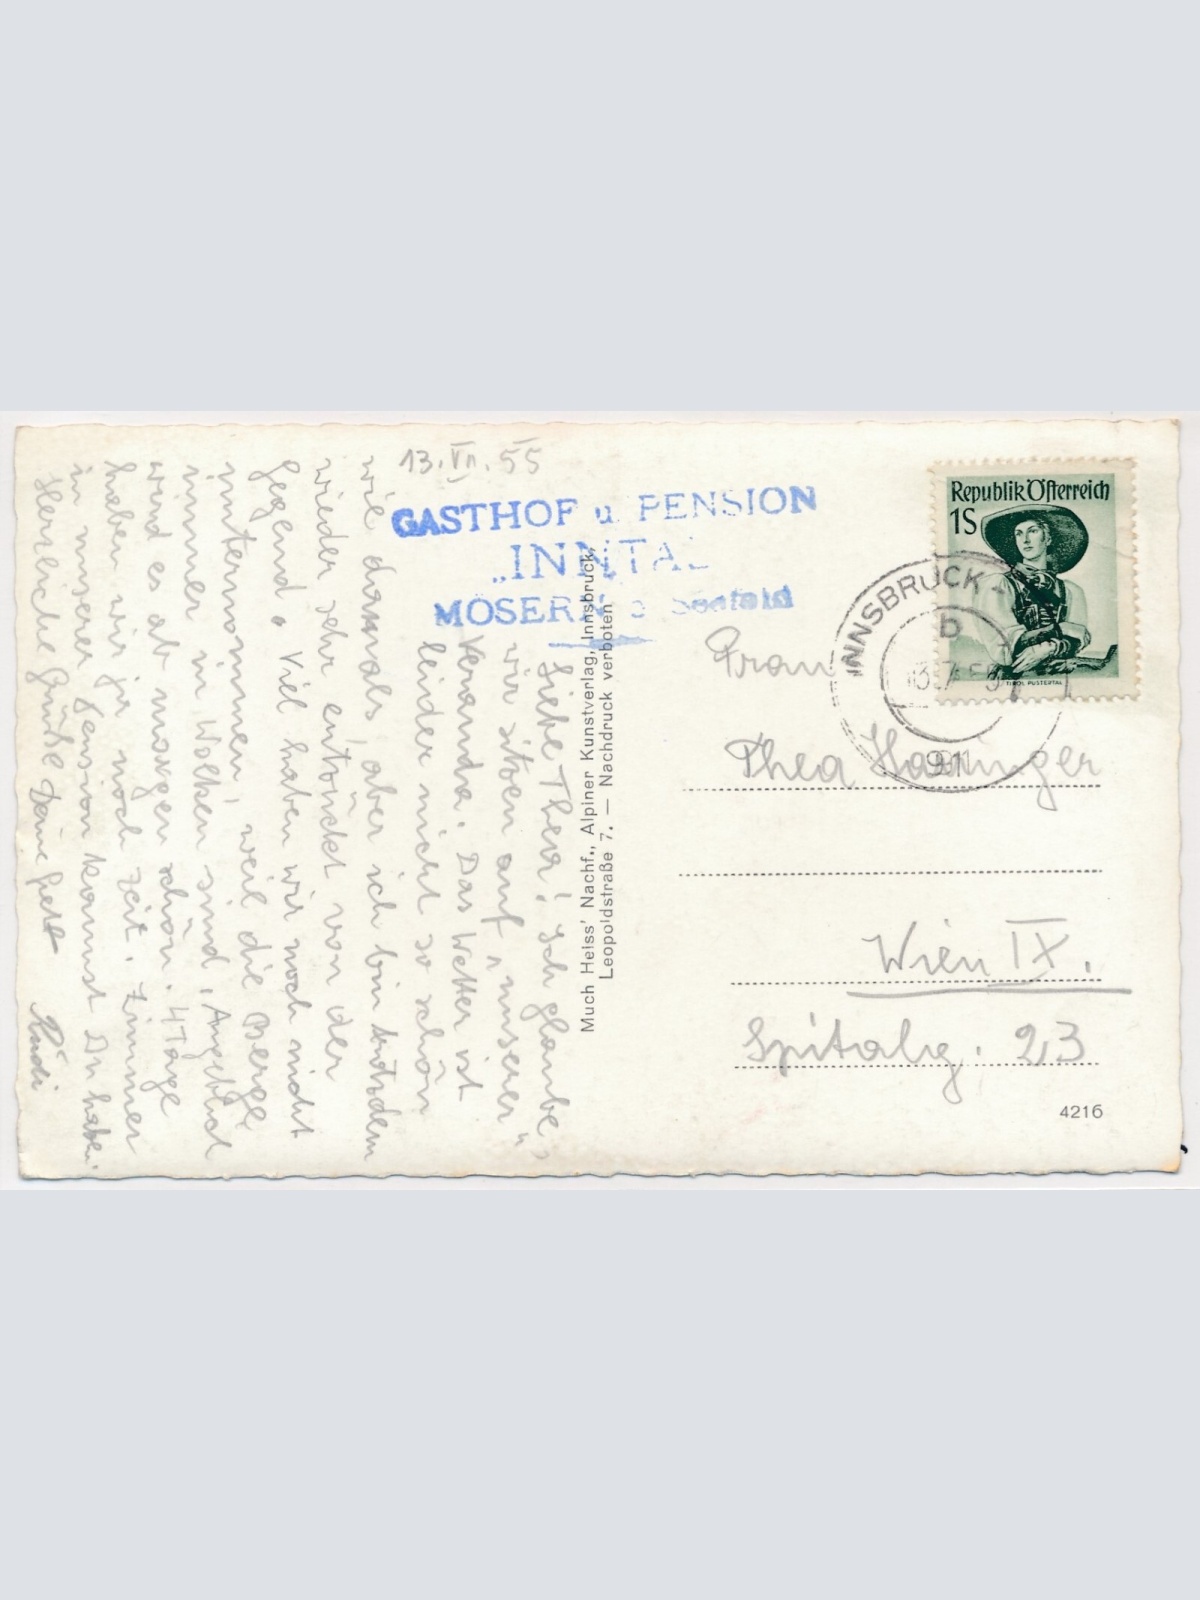 13.VII.55
GASTHOF u. PENSION
„INNTAL
MÖSERN b Seefeld
Liebe Thea! Ich glaube,
wir sitzen auf „unserer“
Veranda. Das Wetter ist
leider nicht so schön
wie damals, aber ich bin trotzdem
wieder sehr entzückt von der
Gegend. Viel haben wir noch nicht
unternommen, weil die Berge
immer in Wolken sind. Angeblich
wird es ab morgen schön. 4 Tage
haben wir ja noch Zeit. Zimmer
in unserer Pension kannst Du haben.
Herzliche Grüße Deine
Rudi
Much Heiss' Nachf., Alpiner Kunstverlag, Innsbruck,
Leopoldstraße 7. — Nachdruck verboten
Republik Österreich
1S
TIROL PUSTERTAL
INNSBRUCK
b
13.7.55
Frau
Thea
Wien IX.
Spitalg. 23
4216